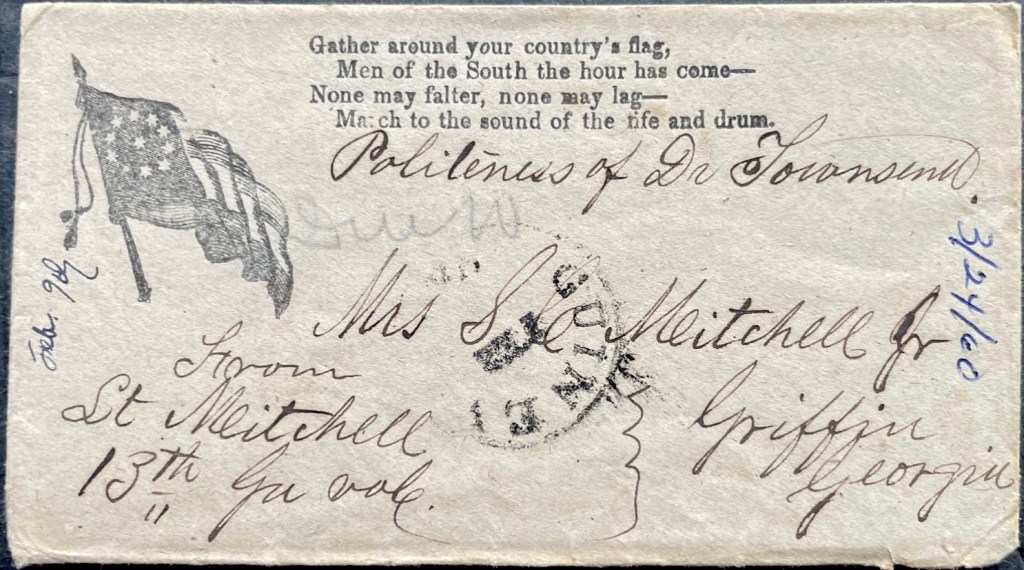 Gather around your country's flag,
Men of the South the hour has come—
None may falter, none may lag—
March to the sound of the fife and drum.
Politeness of Dr Townsend.
3/24/60
Feb. 9th
Due 10
GUINEY
Mrs S C Mitchell Jr
From
Lt Mitchell
13th Ga vol.
Griffin
Georgia